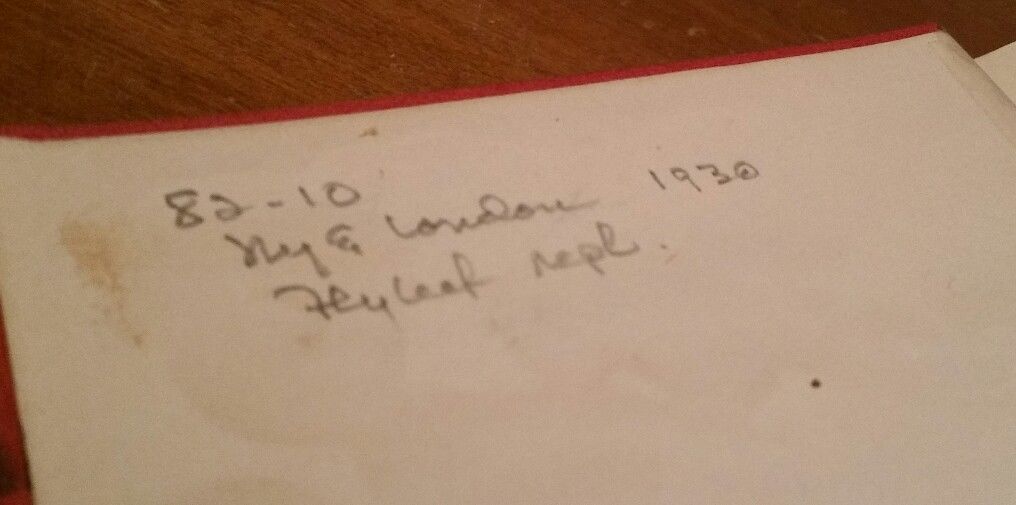 82-10
NY & London 1930
Flyleaf repl.